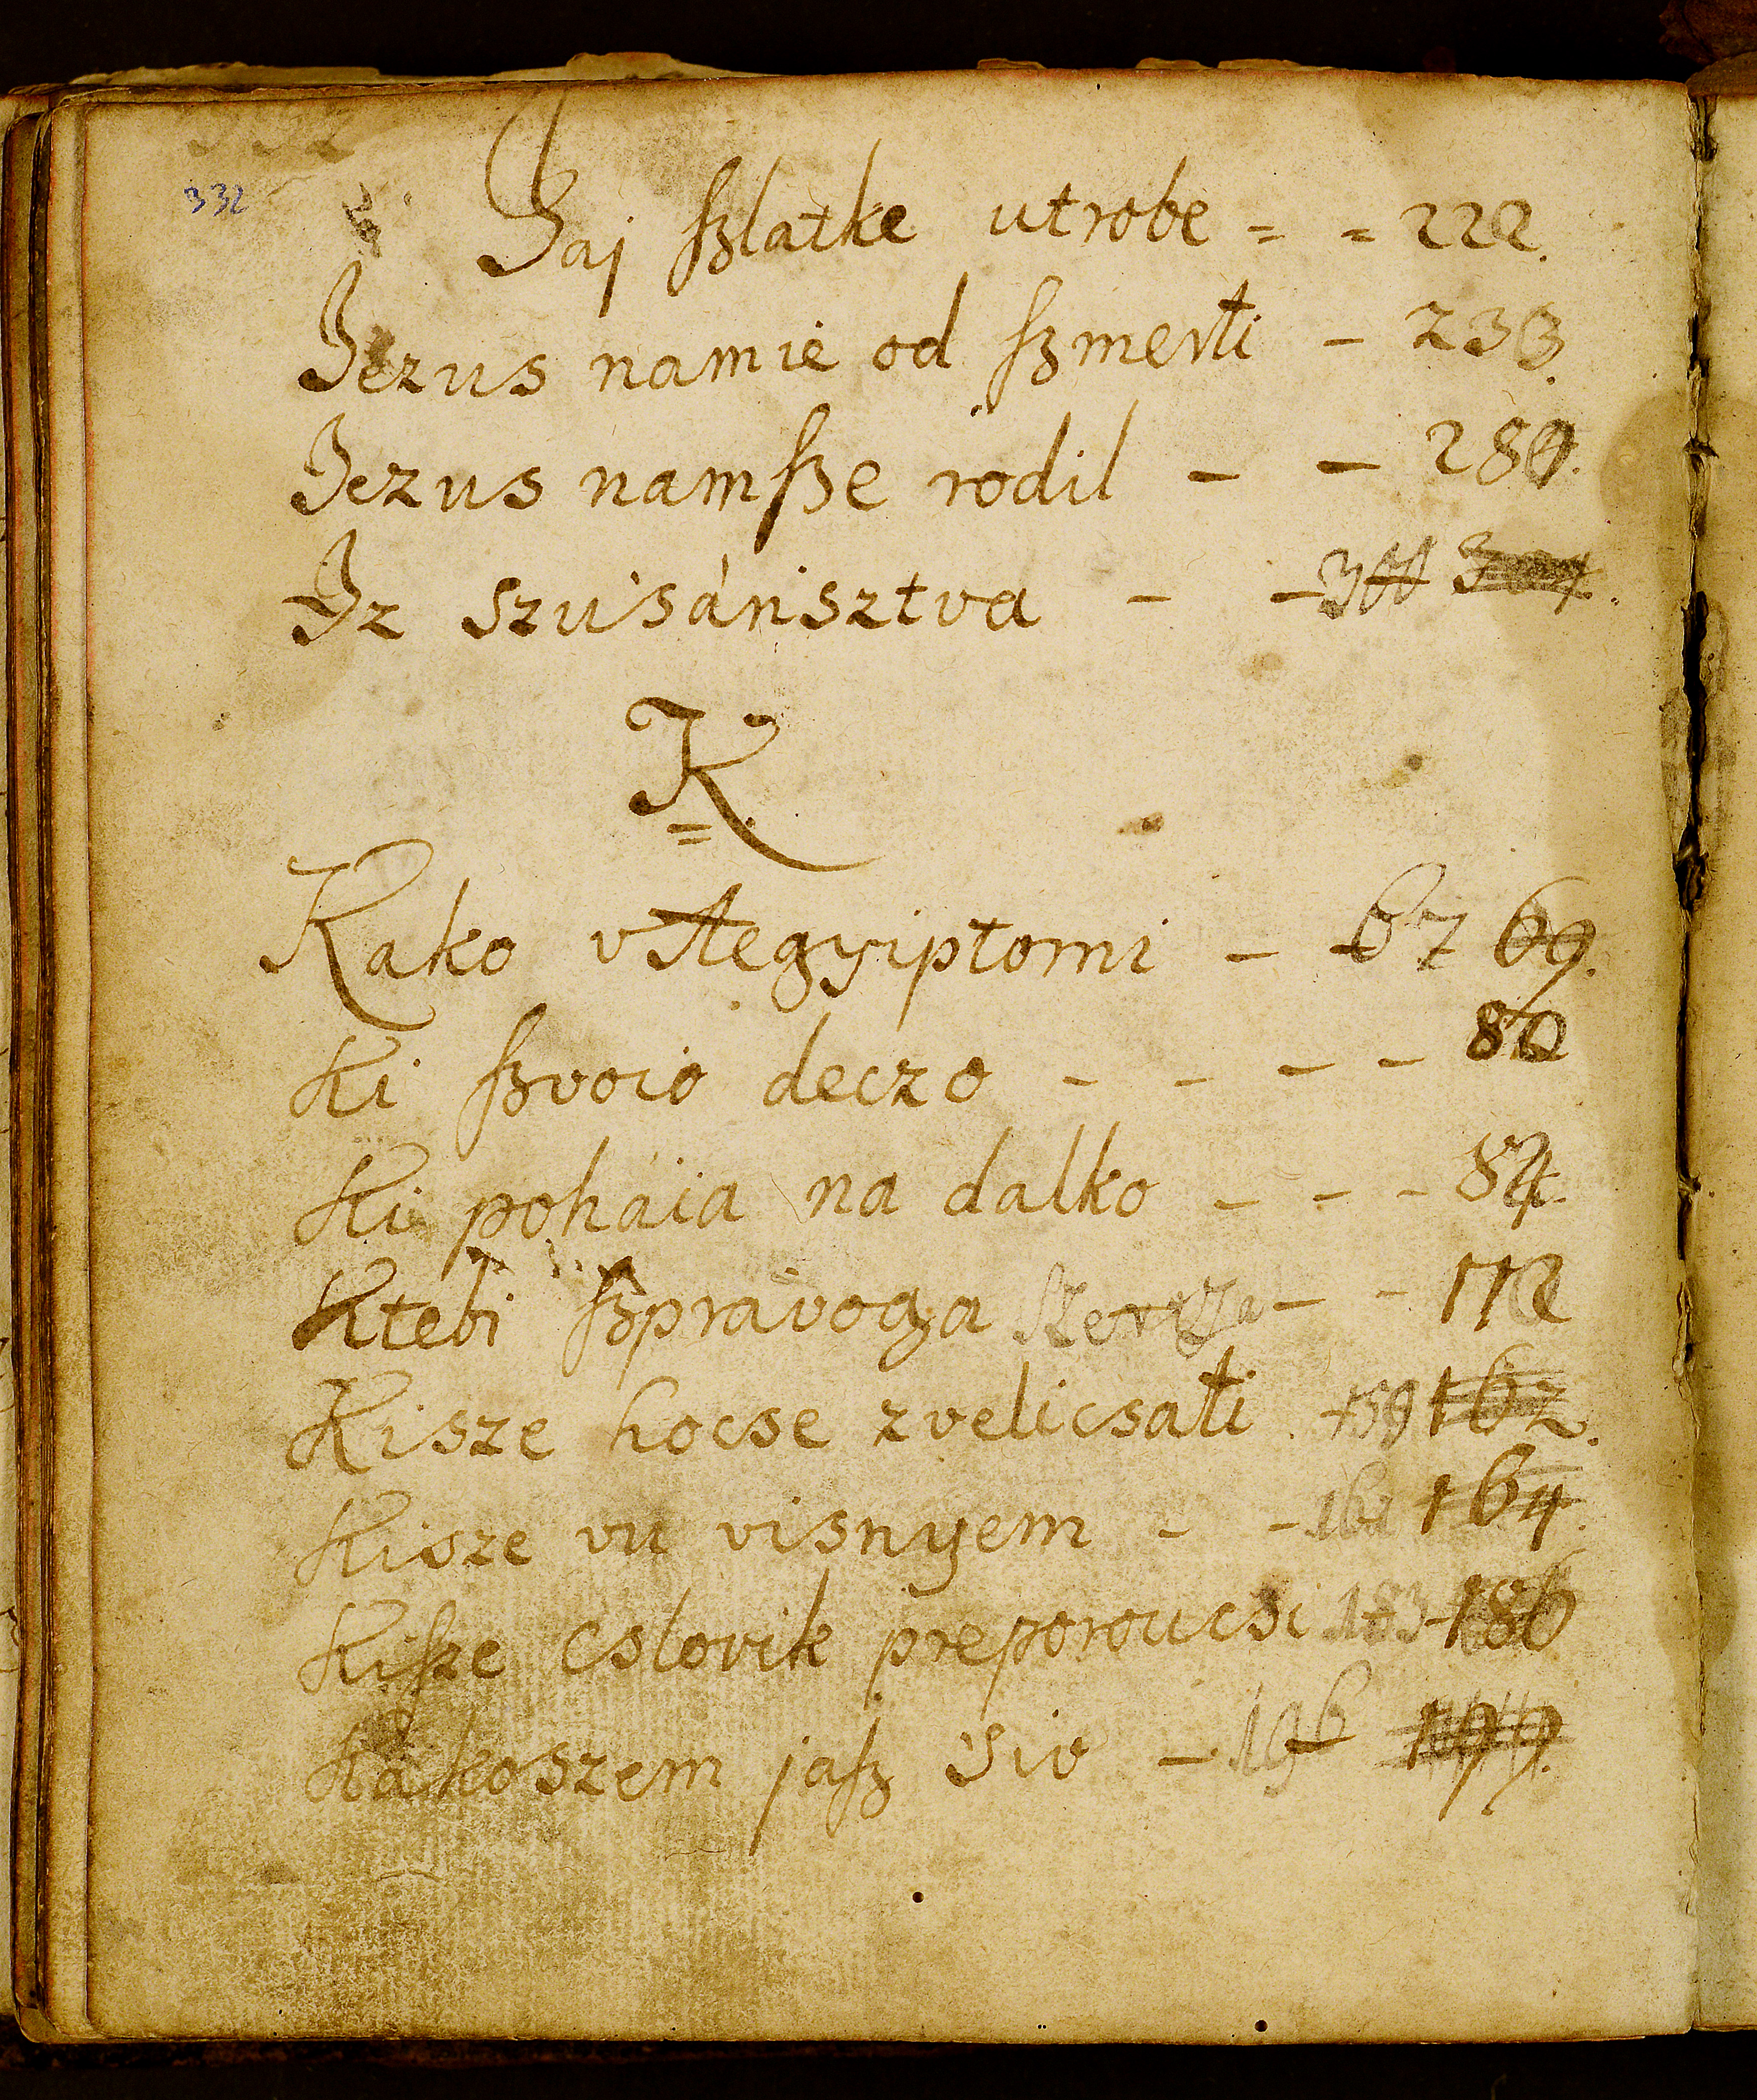 332
Jaj ſzlatke utrobe = = 222.
Jezus namie od ſzmerti – 233.
Jezus namſze rodil – – 280.
Iz szusánisztva – – 300
K.
Kako v Aegyiptomi – 67 69.
Ki ſzvoio deczo – – – – 80
Ki poháia na dalko – – – 82.
Ktebi ſzpravoga szercza – – 112
Kisze hocse zvelicsati 159 162.
Kisze vu visnyem – – 161 164.
Kiſze cslovik preporoucsi 183 – 186
Kakoszem jaſz siv – 196 199.